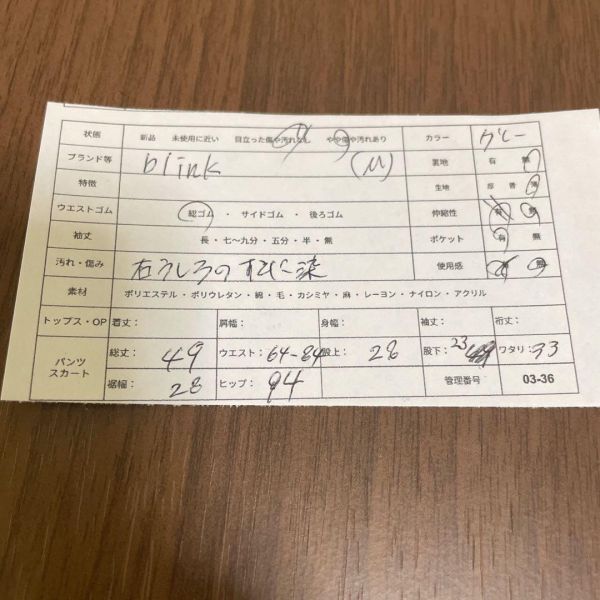 状態 新品 未使用に近い 目立った傷や汚れなし やや傷や汚れあり カラー グレー
ブランド等 blink (M) 裏地 有 無
特徴 生地 厚 普 薄
ウエストゴム 総ゴム ・ サイドゴム ・ 後ろゴム 伸縮性 有 無
袖丈 長・七～九分・五分・半・無 ポケット 有 無
汚れ・傷み 右うしろのすそに染 使用感 有 無
素材 ポリエステル・ポリウレタン・綿・毛・カシミヤ・麻・レーヨン・ナイロン・アクリル
トップス・OP 着丈： 肩幅： 身幅： 袖丈： 裄丈：
パンツ スカート 総丈： 49 ウエスト： 64-84 股上： 28 股下： 23 ワタリ： 33
裾幅： 28 ヒップ： 94 管理番号 03-36